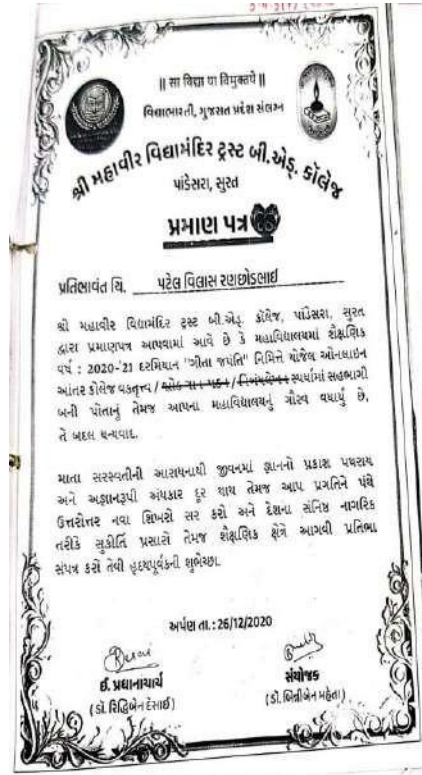 || સા વિદ્યા યા વિમુક્તયે ||
વિદ્યાભારતી, ગુજરાત પ્રદેશ સંલગ્ન
શ્રી મહાવીર વિદ્યામંદિર ટ્રસ્ટ બી.એડ્. કૉલેજ
પાંડેસરા, સુરત
પ્રમાણ પત્ર
પ્રતિભાવંત ચિ. પટેલ વિલાસ રણછોડભાઈ
શ્રી મહાવીર વિદ્યામંદિર ટ્રસ્ટ બી.એડ્. કૉલેજ, પાંડેસરા, સુરત
દ્વારા પ્રમાણપત્ર આપવામાં આવે છે કે મહાવિદ્યાલયમાં શૈક્ષણિક
વર્ષ : 2020-21 દરમિયાન "ગીતા જયંતિ" નિમિત્તે યોજેલ ઓનલાઇન
આંતર કોલેજ વકતૃત્વ / શ્લોક ગાન પઠન / નિબંધલેખન સ્પર્ધામાં સહભાગી
બની પોતાનું તેમજ આપના મહાવિદ્યાલયનું ગૌરવ વધાર્યું છે,
તે બદલ ધન્યવાદ.
માતા સરસ્વતીની આરાધનાથી જીવનમાં જ્ઞાનનો પ્રકાશ પથરાય
અને અજ્ઞાનરૂપી અંધકાર દૂર થાય તેમજ આપ પ્રગતિને પંથે
ઉત્તરોત્તર નવા શિખરો સર કરો અને દેશના સંનિષ્ઠ નાગરિક
તરીકે સુકીર્તિ પ્રસારો તેમજ શૈક્ષણિક ક્ષેત્રે આગવી પ્રતિભા
સંપન્ન કરો તેવી હૃદયપૂર્વકની શુભેચ્છા.
અર્પણ તા.: 26/12/2020
ઈ. પ્રધાનાચાર્ય
સંયોજક
(ડૉ. રિદ્ધિબેન દેસાઈ)
(ડૉ. બિન્નીબેન મહેતા)